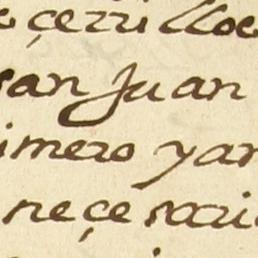 e çerrilloe
san Juan
imero yan
neçesari